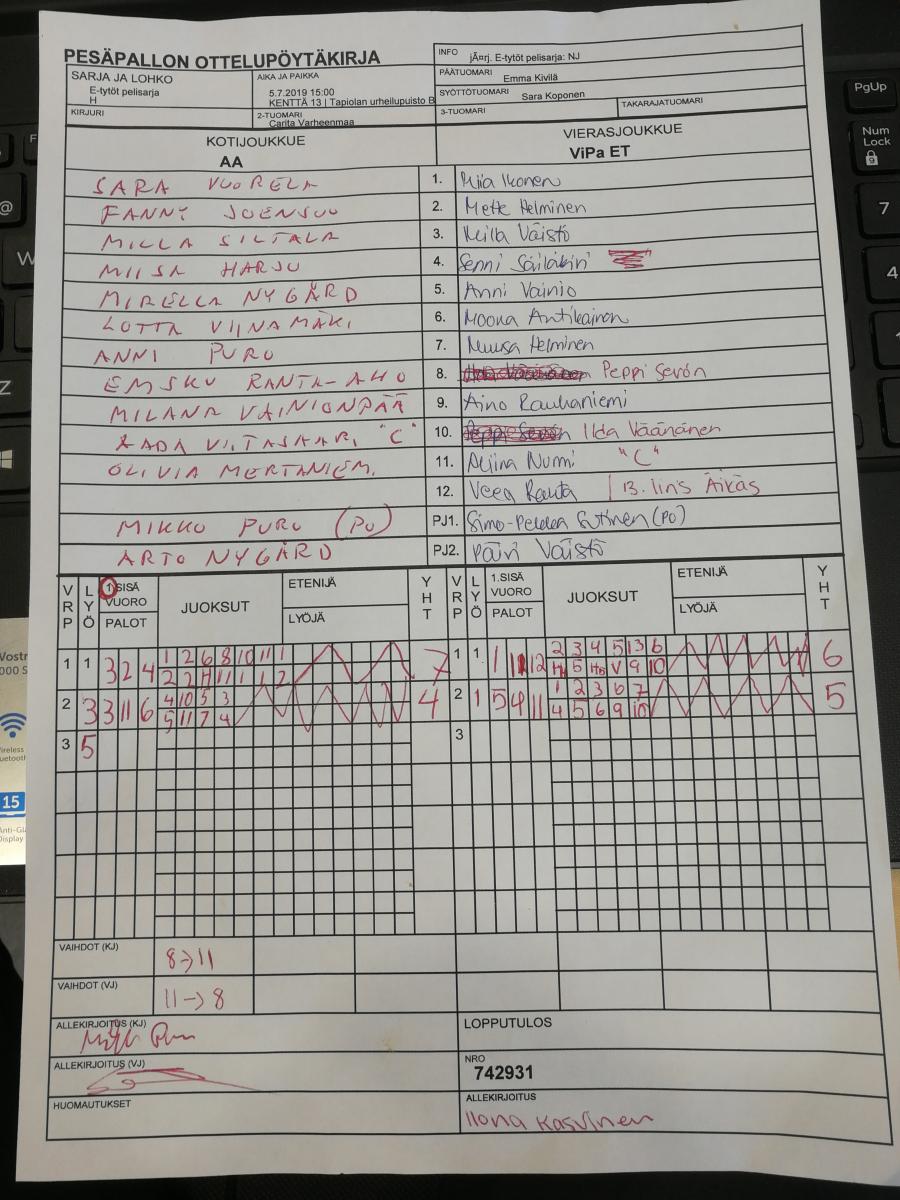 PESÄPALLON OTTELUPÖYTÄKIRJA
INFO jÃ¤rj. E-tytöt pelisarja: NJ
SARJA JA LOHKO
E-tytöt pelisarja
H
AIKA JA PAIKKA
5.7.2019 15:00
KENTTÄ 13 | Tapiolan urheilupuisto B
PÄÄTUOMARI Emma Kivilä
SYÖTTÖTUOMARI Sara Koponen
KIRJURI
2-TUOMARI
Carita Varheenmaa
3-TUOMARI
TAKARAJATUOMARI
KOTIJOUKKUE
AA
VIERASJOUKKUE
ViPa ET
SARA VUORELA 1. Miia Ikonen
FANNY JOENSUU 2. Mette Helminen
MILLA SILTALA 3. Milla Väistö
MIISA HARJU 4. Senni Säiläkivi
MIRELLA NYGÅRD 5. Anni Vainio
LOTTA VIINAMÄKI 6. Moona Antikainen
ANNI PURO 7. Muusa Helminen
EMSKU RANTA-AHO 8. Peppi Sevón
MILANA VAINIONPÄÄ 9. Aino Rauhaniemi
AADA VIITASAARI "C" 10. Ilda Väänänen
OLIVIA MERTANIEMI 11. Aliina Nurmi "C"
12. Veea Rauta | 13. Iiris Äikäs
MIKKO PURO (PJ) PJ1. Simo-Pekka Sutinen (PJ)
ARTO NYGÅRD PJ2. Päivi Väistö
VRP LYÖ 1.SISÄ VUORO PALOT JUOKSUT ETENIJÄ LYÖJÄ YHT VRP LYÖ 1.SISÄ VUORO PALOT JUOKSUT ETENIJÄ LYÖJÄ YHT
1 1 3 2 4 1 2 6 8 10 11 1 7 1 1 1 11 12 2 3 4 5 13 6 6
2 2 H 1 1 1 2 H 5 H V 9 10
2 3 3 11 6 4 10 5 3 4 2 1 5 9 11 1 2 3 6 7 5
5 11 7 4 4 5 6 9 10
3 5 3
VAIHDOT (KJ) 8→11
VAIHDOT (VJ) 11→8
ALLEKIRJOITUS (KJ)
LOPPUTULOS
ALLEKIRJOITUS (VJ)
NRO
742931
HUOMAUTUKSET
ALLEKIRJOITUS
Ilona Kasvinen
PgUp
Num Lock
7
4
15